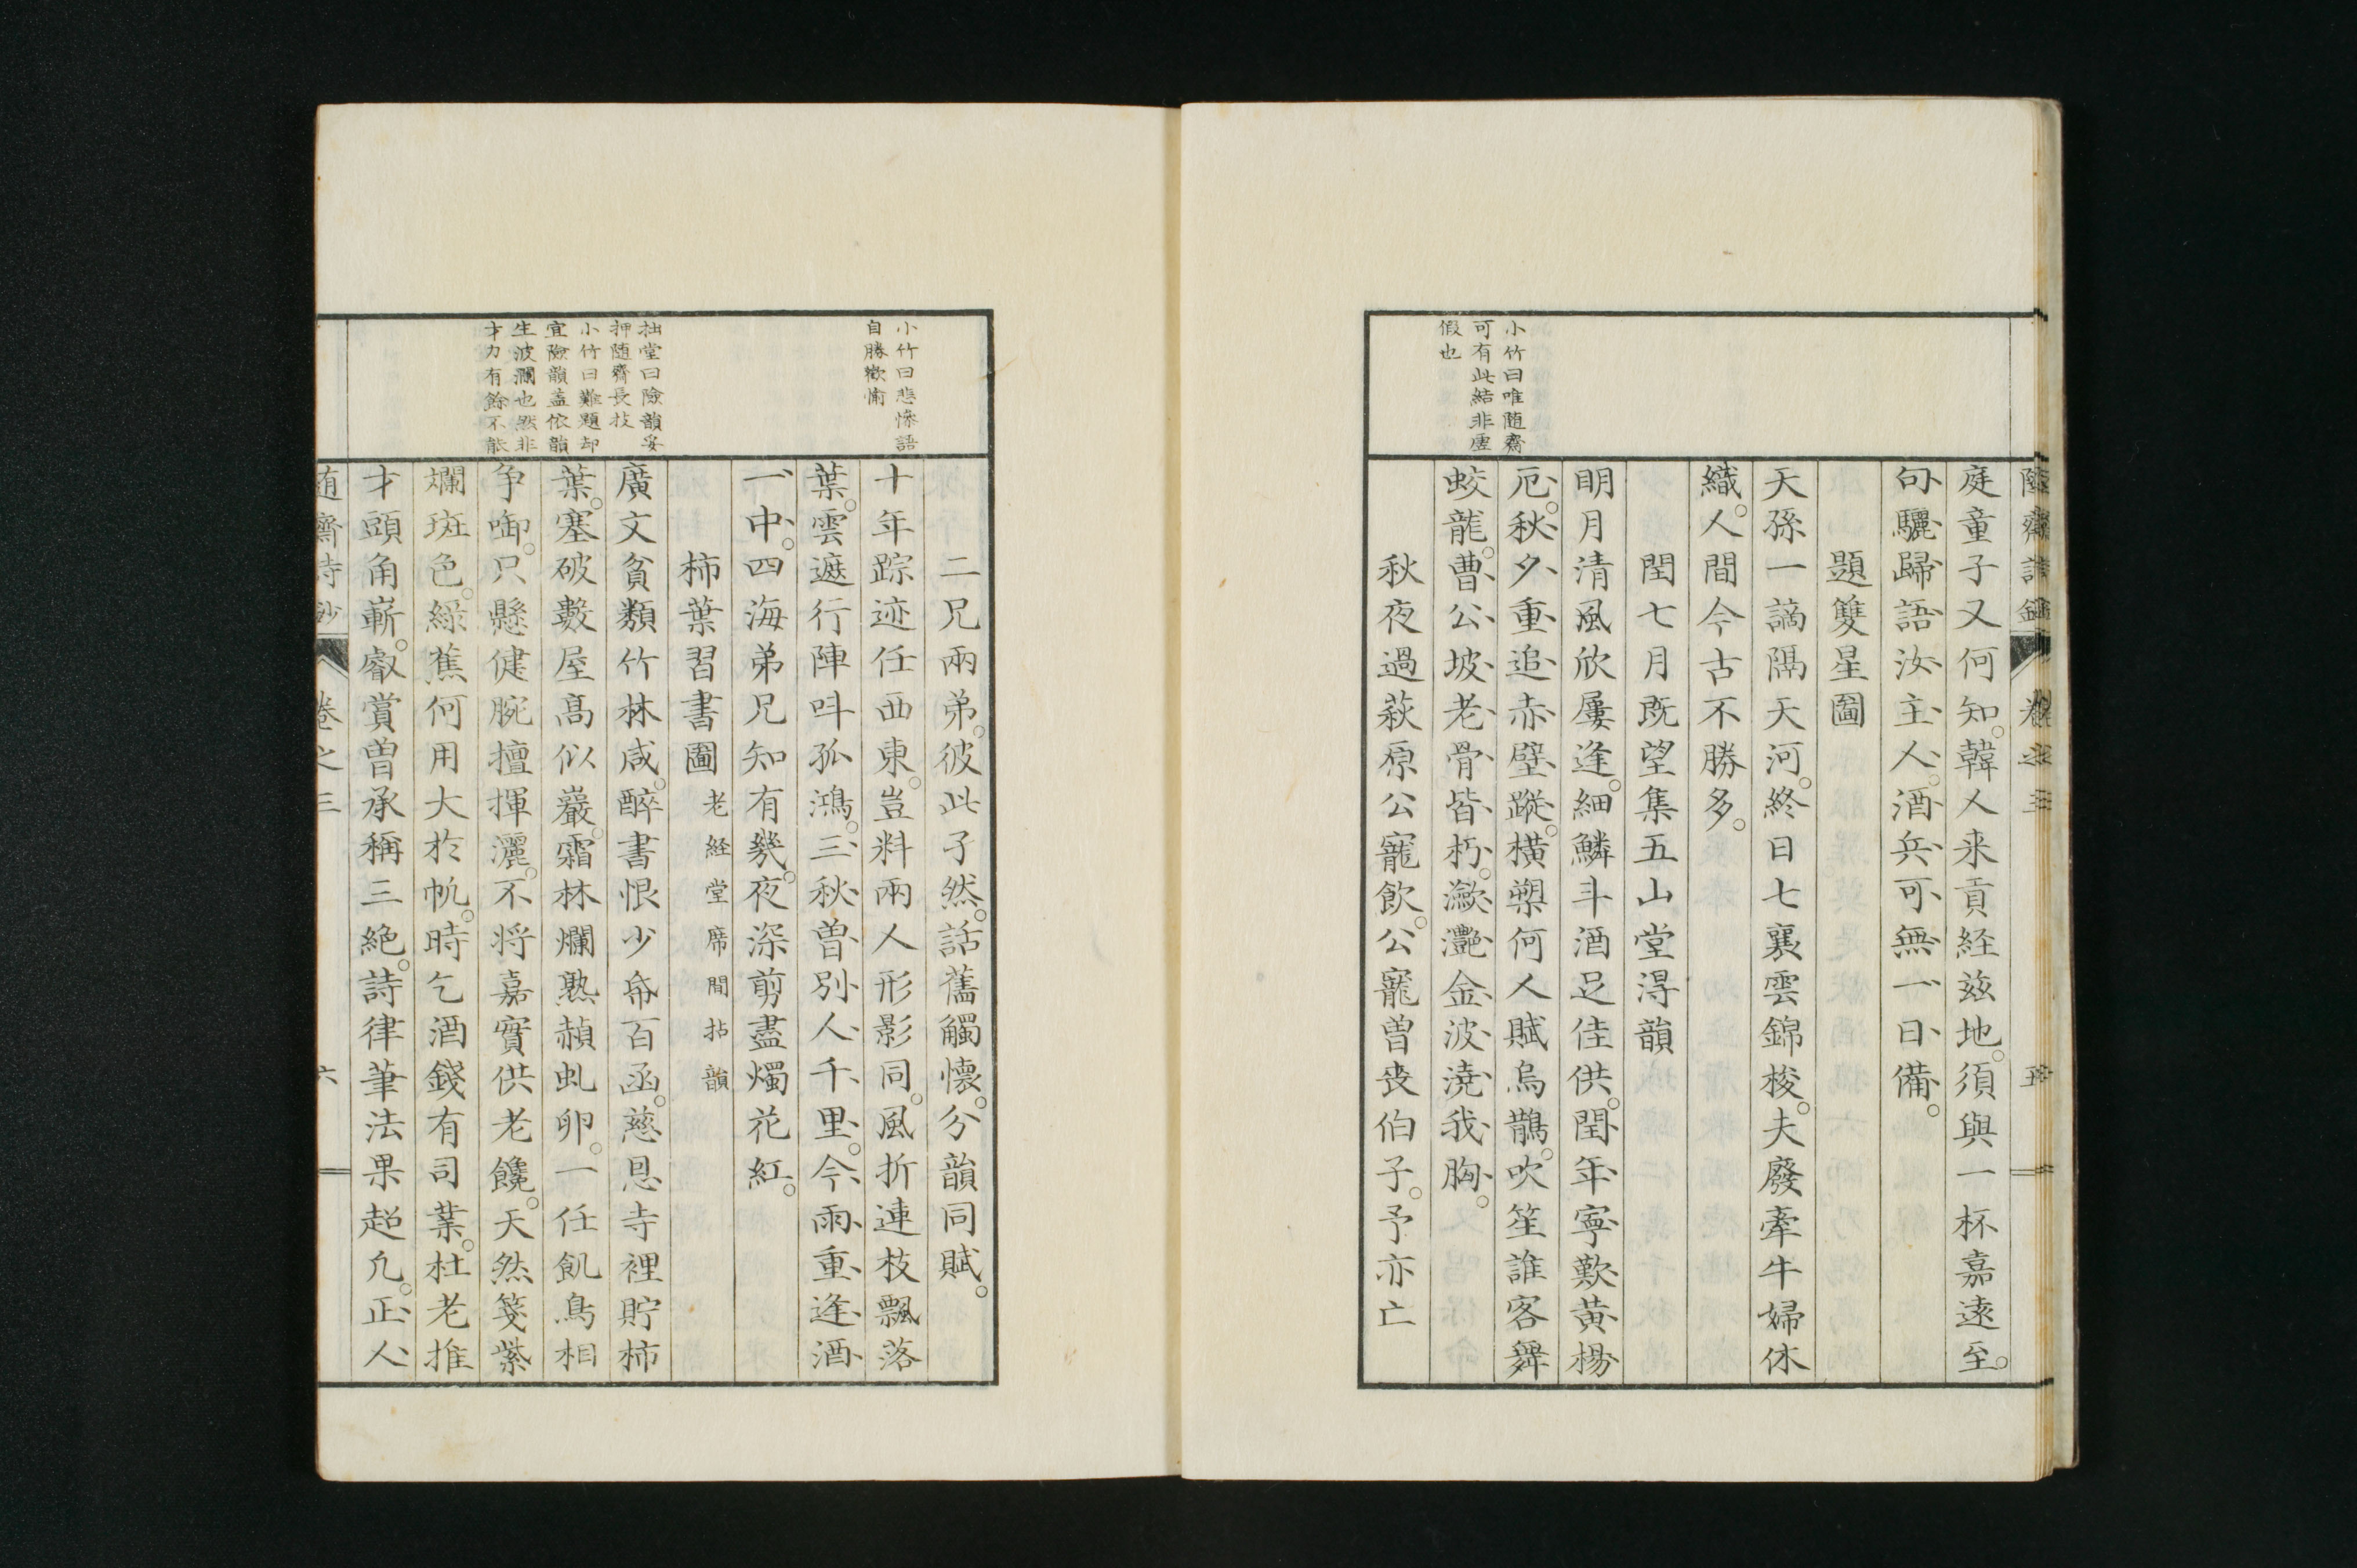 隨齋詩鈔 卷之三 五
庭童子又何知。韓人来貢経玆地。須與一杯嘉遠至。
句驪歸語汝主人。酒兵可無一日備。
題雙星圖
天孫一謫隔天河。終日七襄雲錦梭。夫廢牽牛婦休
織。人間今古不勝多。
閏七月既望集五山堂得韻
明月清風欣屢逢。細鱗斗酒足佳供。閏年寧歎黄楊
厄。秋夕重追赤壁蹤。橫槊何人賦烏鵲。吹笙誰客舞
蛟龍。曹公坡老骨皆朽。瀲灔金波澆我胸。
秋夜過萩原公寵飲。公寵曽喪伯子。予亦亡
小竹曰唯随齋
可有此結非虚
假也
二兄兩弟。彼此孑然。話舊觸懷。分韻同賦。
十年踪迹任西東。豈料兩人形影同。風折連枝飄落
葉。雲遮行陣呌孤鴻。三秋曽別人千里。今雨重逢酒
一中。四海弟兄知有幾。夜深剪盡燭花紅。
柿葉習書圖 老経堂席間拈韻
廣文貧類竹林咸。醉書恨少帋百函。慈恩寺裡貯柿
葉。塞破數屋高似巖。霜林爛熟赬虬卵。一任飢鳥相
争啣。只懸健腕擅揮灑。不将嘉實供老饞。天然箋紫
斕斑色。緑蕉何用大於帆。時乞酒錢有司業。杜老推
才頭角嶄。叡賞曽承稱三絶。詩律筆法果超凢。正人
小竹曰悲慘語
自勝歡愉
拙堂曰險韻妥
押随齋長技
小竹曰難題却
宜險韻盖依韻
生波瀾也然非
才力有餘不能
随齋詩鈔 卷之三 六